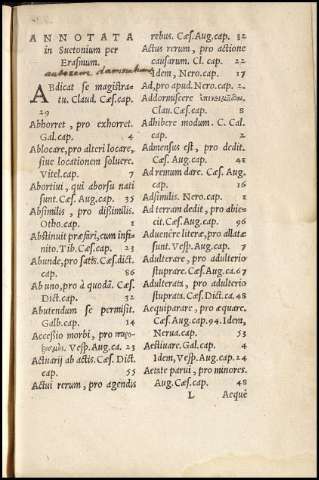 ANNOTATA
in Suetonium per
Erasmum.
autorem damnatum
ABdicat se magistra-
tu. Claud. Cæs.cap.
29
Abhorret, pro exhorret.
Gal.cap. 4
Ablocare, pro alteri locare,
siue locationem soluere.
Vitel.cap. 7
Abortiui, qui aborsu nati
sunt. Cæs. Aug.cap. 35
Absimilis, pro dissimilis.
Otho.cap. 1
Abstinuit præfari, cum infi-
nito. Tib. Cæs.cap. 23
Abunde, pro satis. Cæs. dict.
cap. 86
Ab uno, pro à quodā. Cæs.
Dict.cap. 32
Abutendum se permisit.
Galb.cap. 14
Accessio morbi, pro
Vesp. Aug.ca. 23
Actuarij ab actis. Cæs. Dict.
cap. 55
Actui rerum, pro agendis
rebus. Cæs. Aug.cap. 32
Actus rerum, pro actione
causarum. Cl. cap. 22
Idem, Nero.cap. 17
Ad, pro apud. Nero.cap. 2.
Addormiscere
Clau. Cæs.cap. 8
Adhibere modum. C. Cal.
cap. 2
Admensus est, pro dedit.
Cæs. Aug.cap. 41
Ad remum dare. Cæs. Aug.
cap. 16
Adsimilis. Nero.cap. 1
Ad terram dedit, pro abie-
cit. Cæs. Aug.cap. 94
Aduenêre literæ, pro allatæ
sunt. Vesp. Aug.cap. 7
Adulterare, pro adulterio
stuprare. Cæs. Aug.ca.67
Adulterata, pro adulterio
stuprata. Cæs. Dict.ca.48
Aequiparare, pro æquare.
Cæs. Aug.cap.94. Idem,
Nerua.cap. 53
Aestiuare. Gal.cap. 4
Idem, Vesp. Aug.cap. 24
Aetate parui, pro minores.
Aug. Cæs.cap. 48
L Aequè